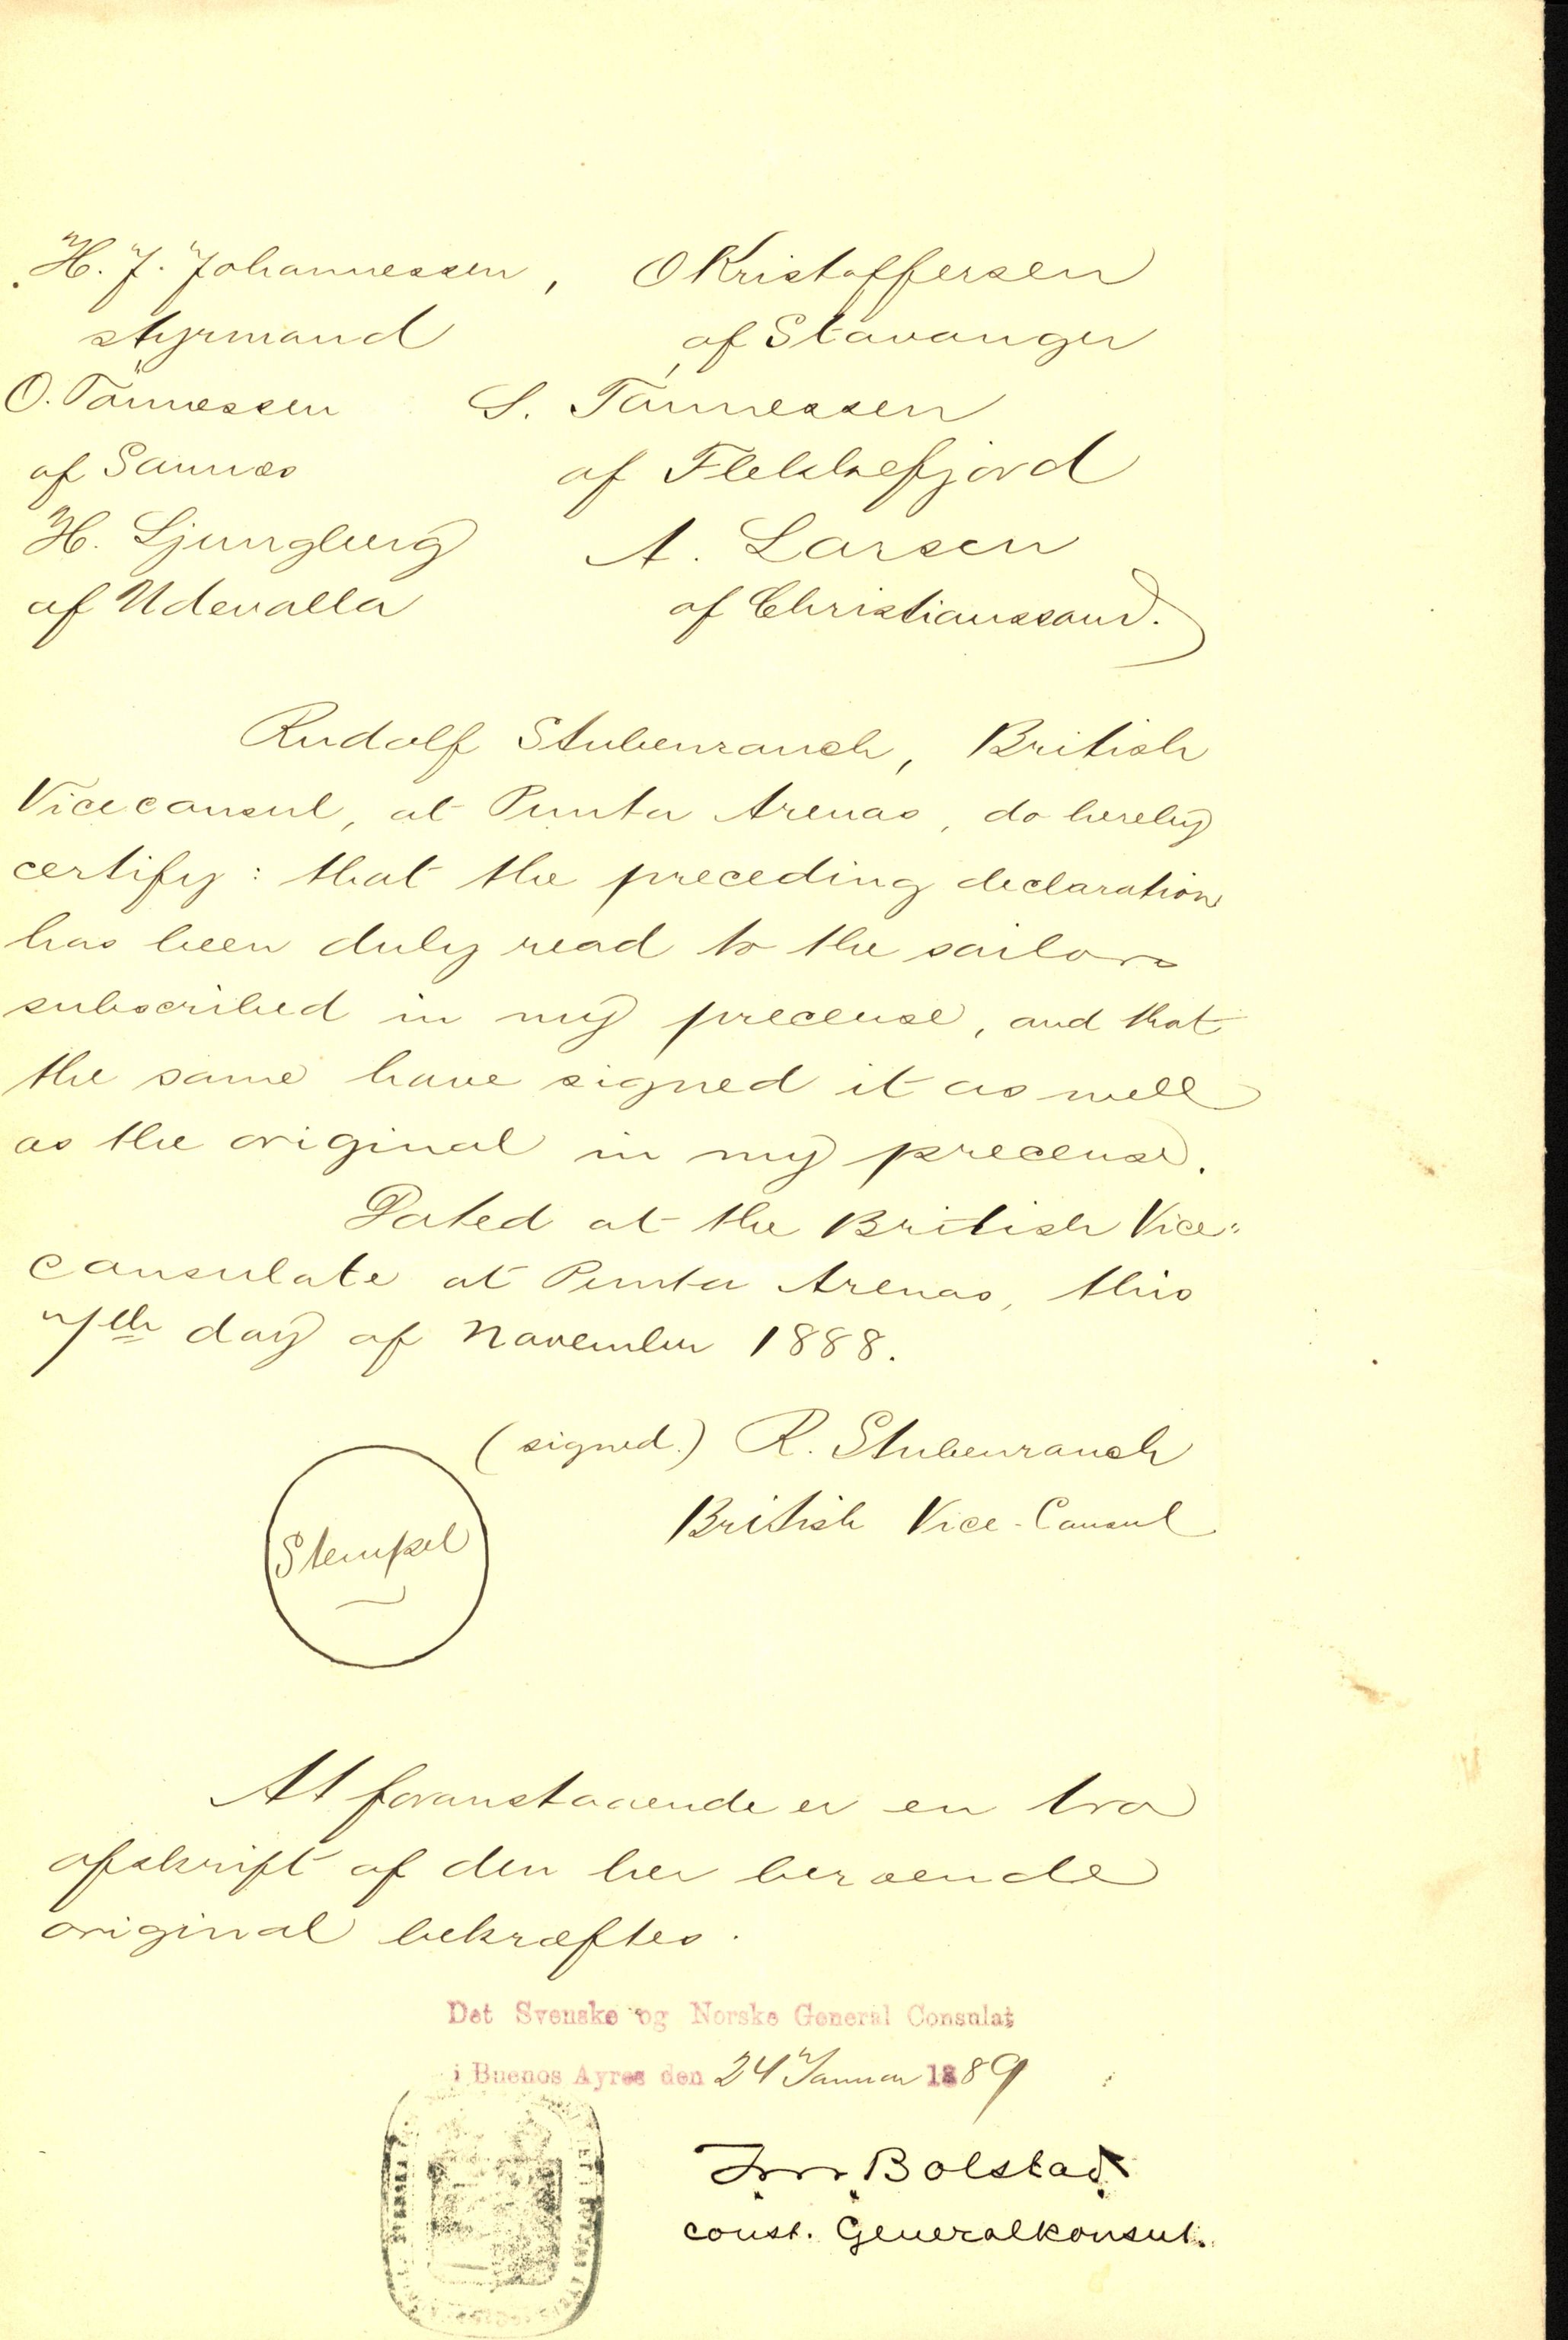 H. J. Johannessen, O Kristoffersen
styrmand af Stavanger
O. Tönnessen S. Tönnessen
af Sannæs af Flekkefjord
H. Ljungberg A. Larsen
af Udevalla af Christianssand.
Rudolf Stubenrauch, British
Viceconsul, at Punta Arenas, do hereby
certify: that the preceding declaration
has been duly read to the sailors
subscribed in my precense, and that
the same have signed it as well
as the original in my precense.
Dated at the British Vice-
consulate at Punta Arenas, this
7th day of November 1888.
(signed.) R. Stubenrauch
British Vice-Consul
Stempel
At foranstaaende er en tro
afskrift af den her beroende
original bekræftes.
Det Svenske og Norske General Consulat
i Buenos Ayres den 24 Januar 1889
Bolstad
const. Generalkonsul.